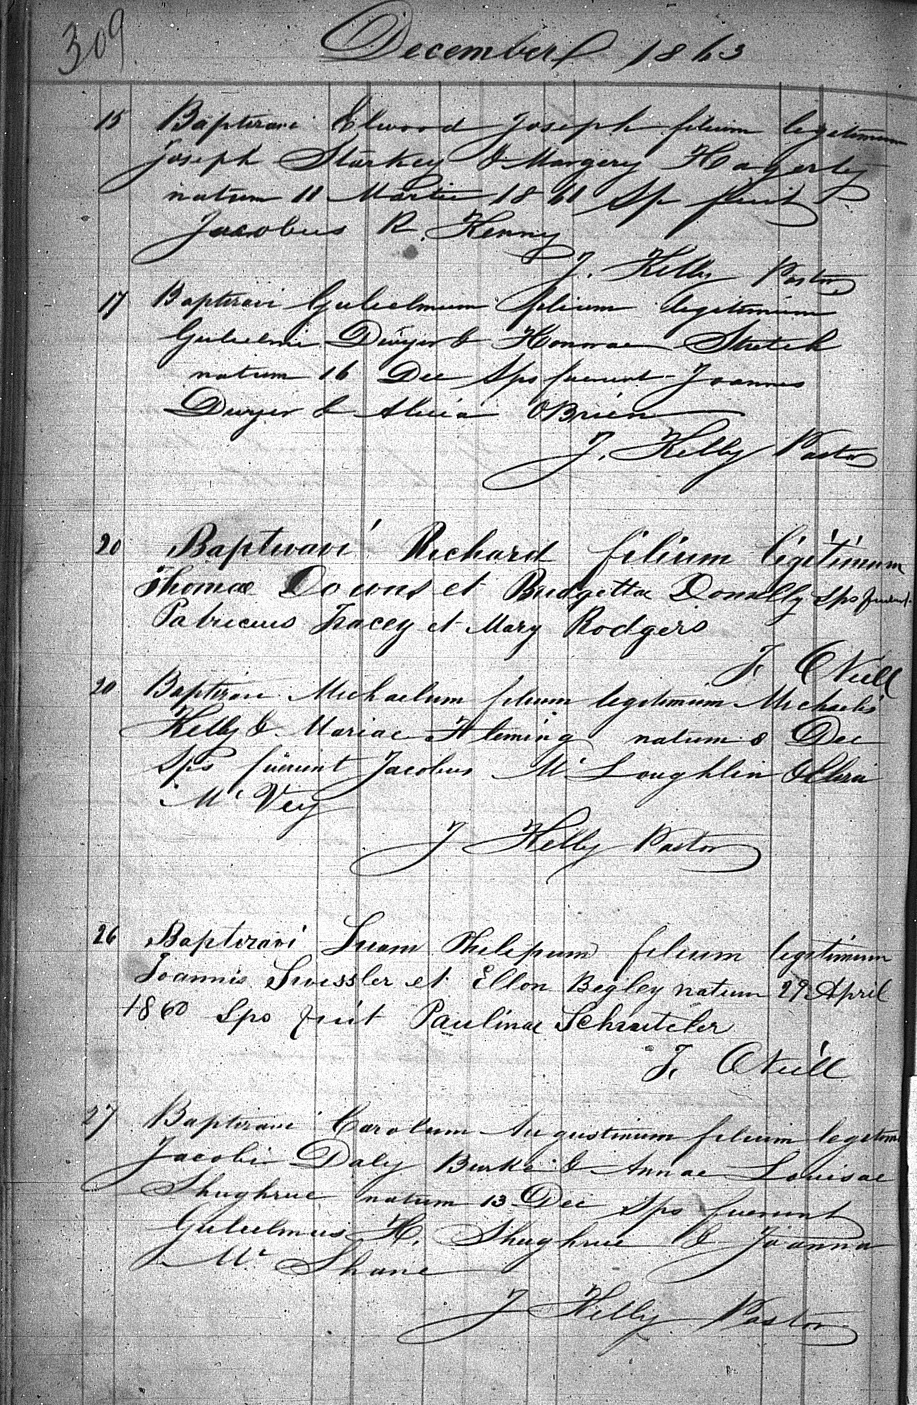 309 December 1863
15 Baptizavi Elwood Joseph filium legitimum
Joseph Starkey & Margery Hagerty
natum 11 Martii 1861 Sp fuit
Jacobus R. Kenny
J. Kelly Pastor
17 Baptizavi Gulielmum filium legitimum
Gulielmi Dwyer & Honorae Stretch
natum 16 Dec Sps fuerunt Joannes
Dwyer & Alicia OBrien
J. Kelly Pastor
20 Baptizavi Richard filium legitimum
Thomae Downs et Bridgettae Donally Sps fuerunt
Patricius Tracey et Mary Rodgers
J. ONeill
20 Baptizavi Michaelum filium legitimum Michaelis
Kelly & Mariae Fleming natum 8 Dec
Sps fuerunt Jacobus Mc Loughlin &
Mc Vey
J Kelly Pastor
26 Baptizavi filium legitimum
Joannis et Ellen Begley natum 29 April
1860 Sps fuit Paulinae
J. ONeill
27 Baptizavi Carolum Augustinum filium legitimum
Jacobi Daly Burke & Annae Louisae
Shughrue natum 13 Dec Sps fuerunt
Gulielmus H. Shughrue & Joanna
Mc Shane
J Kelly Pastor